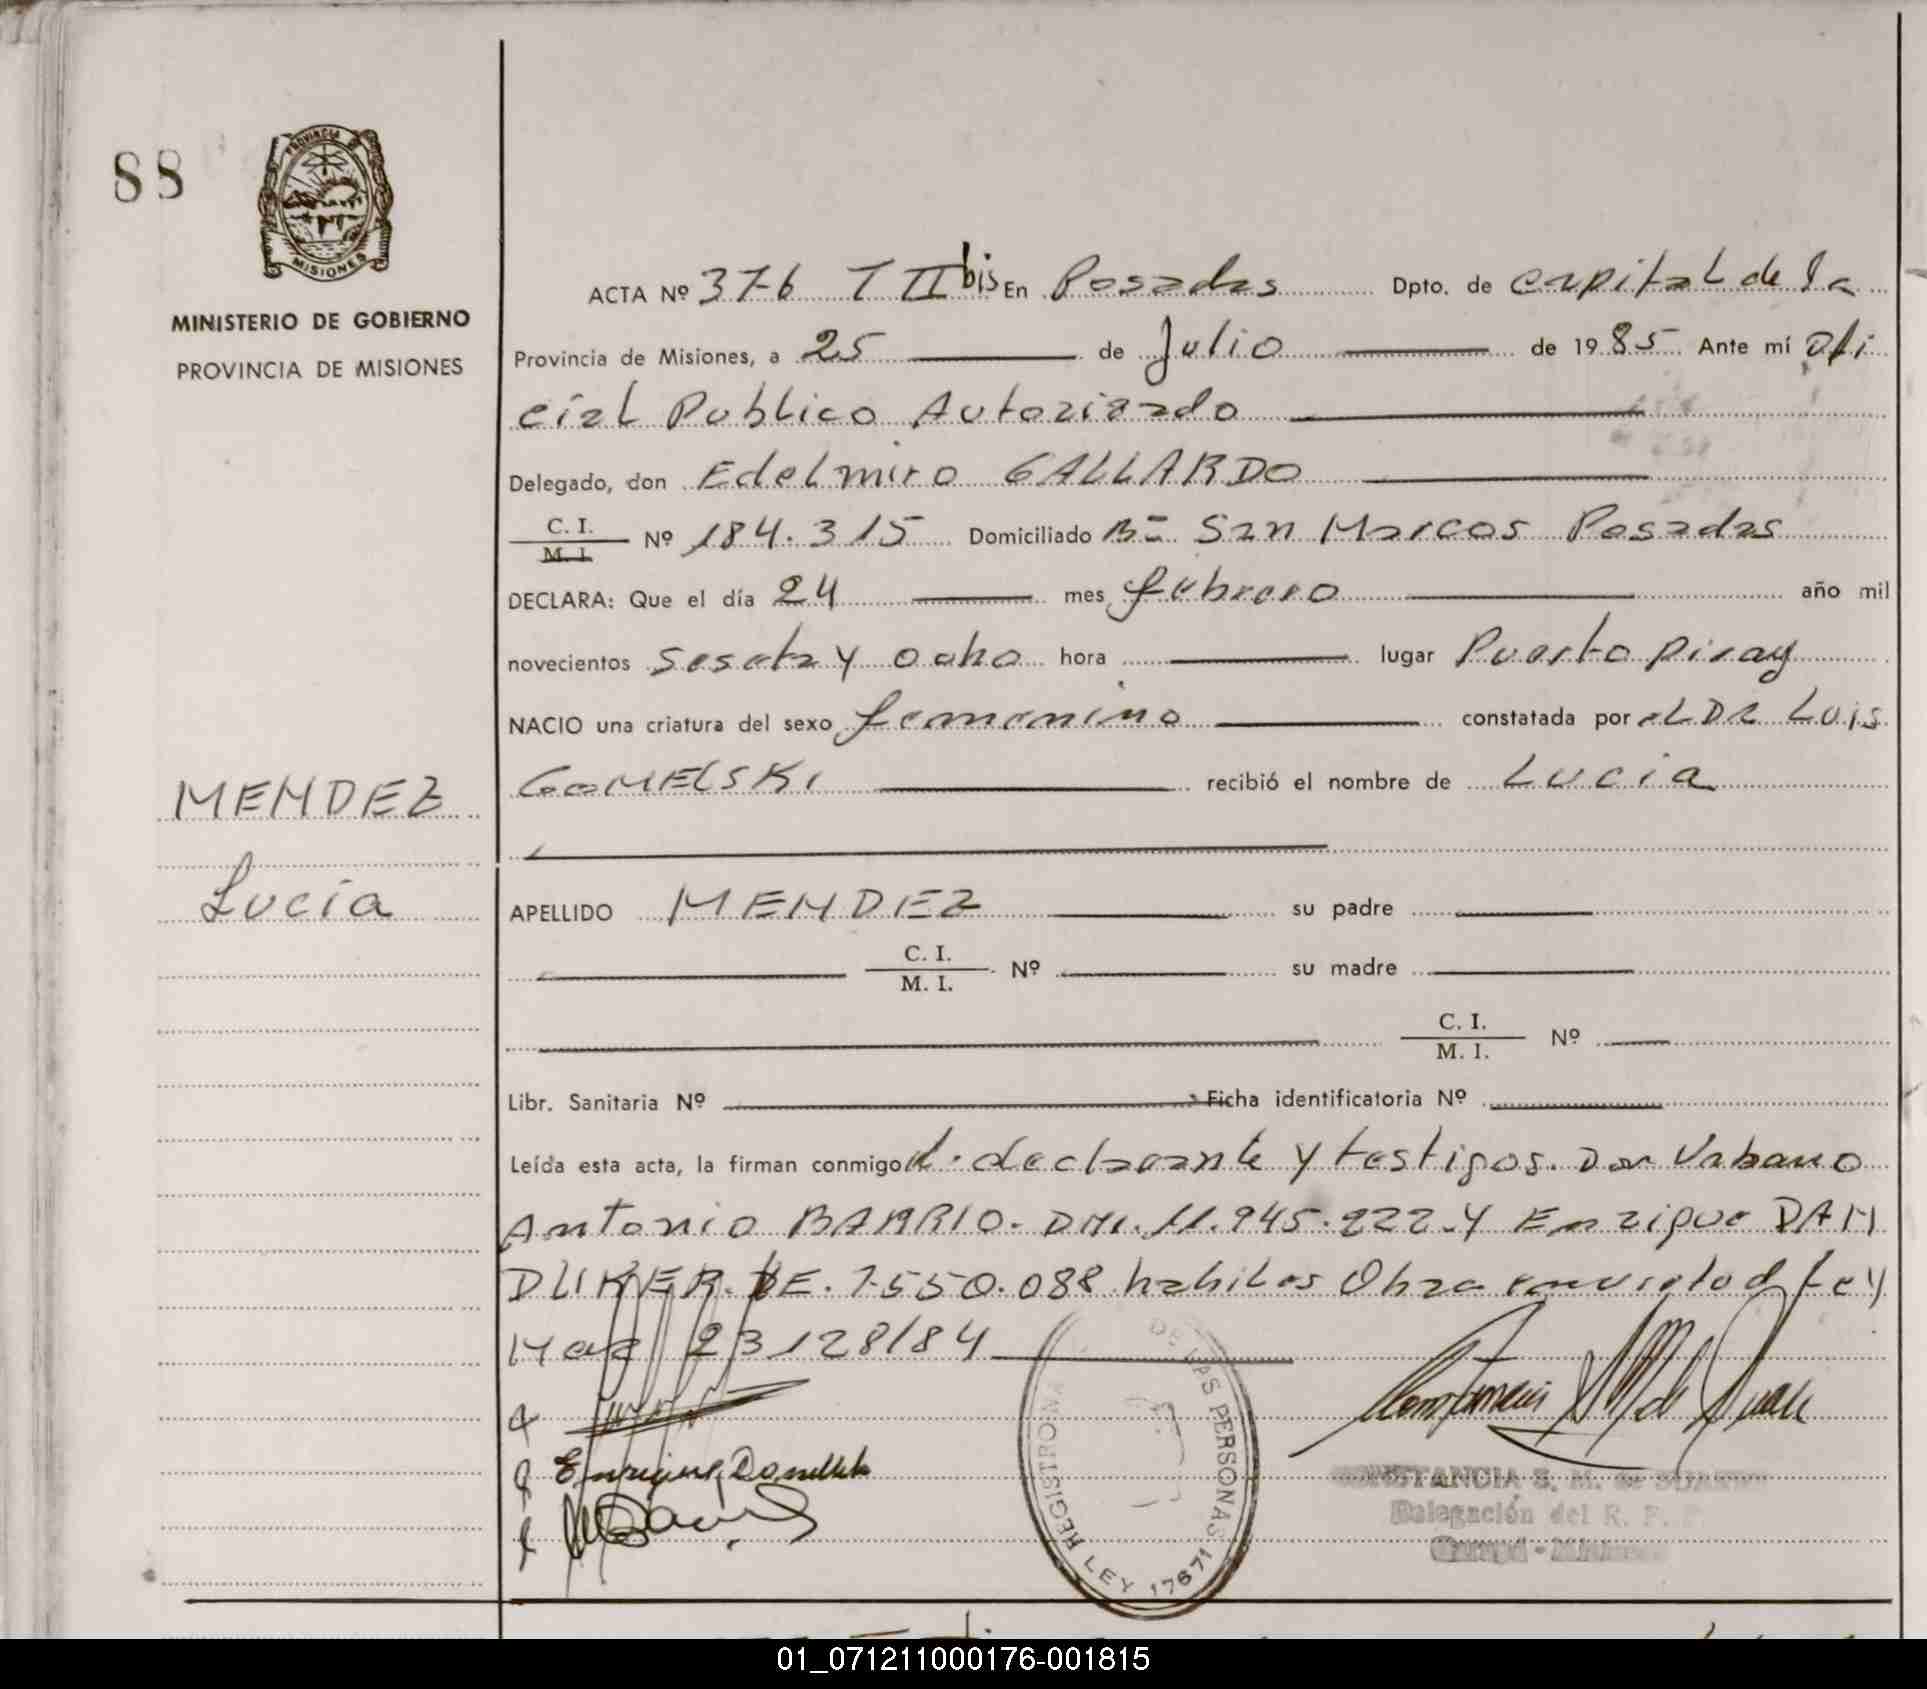 88
PROVINCIA DE
MISIONES
MINISTERIO DE GOBIERNO
PROVINCIA DE MISIONES
ACTA Nº 376 T II bis En Posadas Dpto. de capital de la
Provincia de Misiones, a 25 de Julio de 1985 Ante mí Ofi
cial Publico Autorizado
Delegado, don Edelmiro GALLARDO
C. I.
M. I. Nº 184.315 Domiciliado Bº San Marcos Posadas
DECLARA: Que el día 24 mes febrero año mil
novecientos seseta y ocho hora lugar Puerto Piray
NACIO una criatura del sexo femenino constatada por el DR Luis
GOMELSKI recibió el nombre de Lucia
MENDEZ
Lucía
APELLIDO MENDEZ su padre
C. I.
M. I. Nº su madre
C. I.
M. I. Nº
Libr. Sanitaria Nº Ficha identificatoria Nº
Leída esta acta, la firman conmigo el declarante y testigos. Don Urbano
Antonio BARRIO. DNI. 11.945.222 y Enrique DAM
DUKER. DE. 7.550.088 habiles Obra
23128/84
Enrique
REGISTRO NA DE LAS PERSONAS
LEY 17671
CONSTANCIA S. M. de SUAREZ
Delegación del R. P. P.
01_071211000176-001815